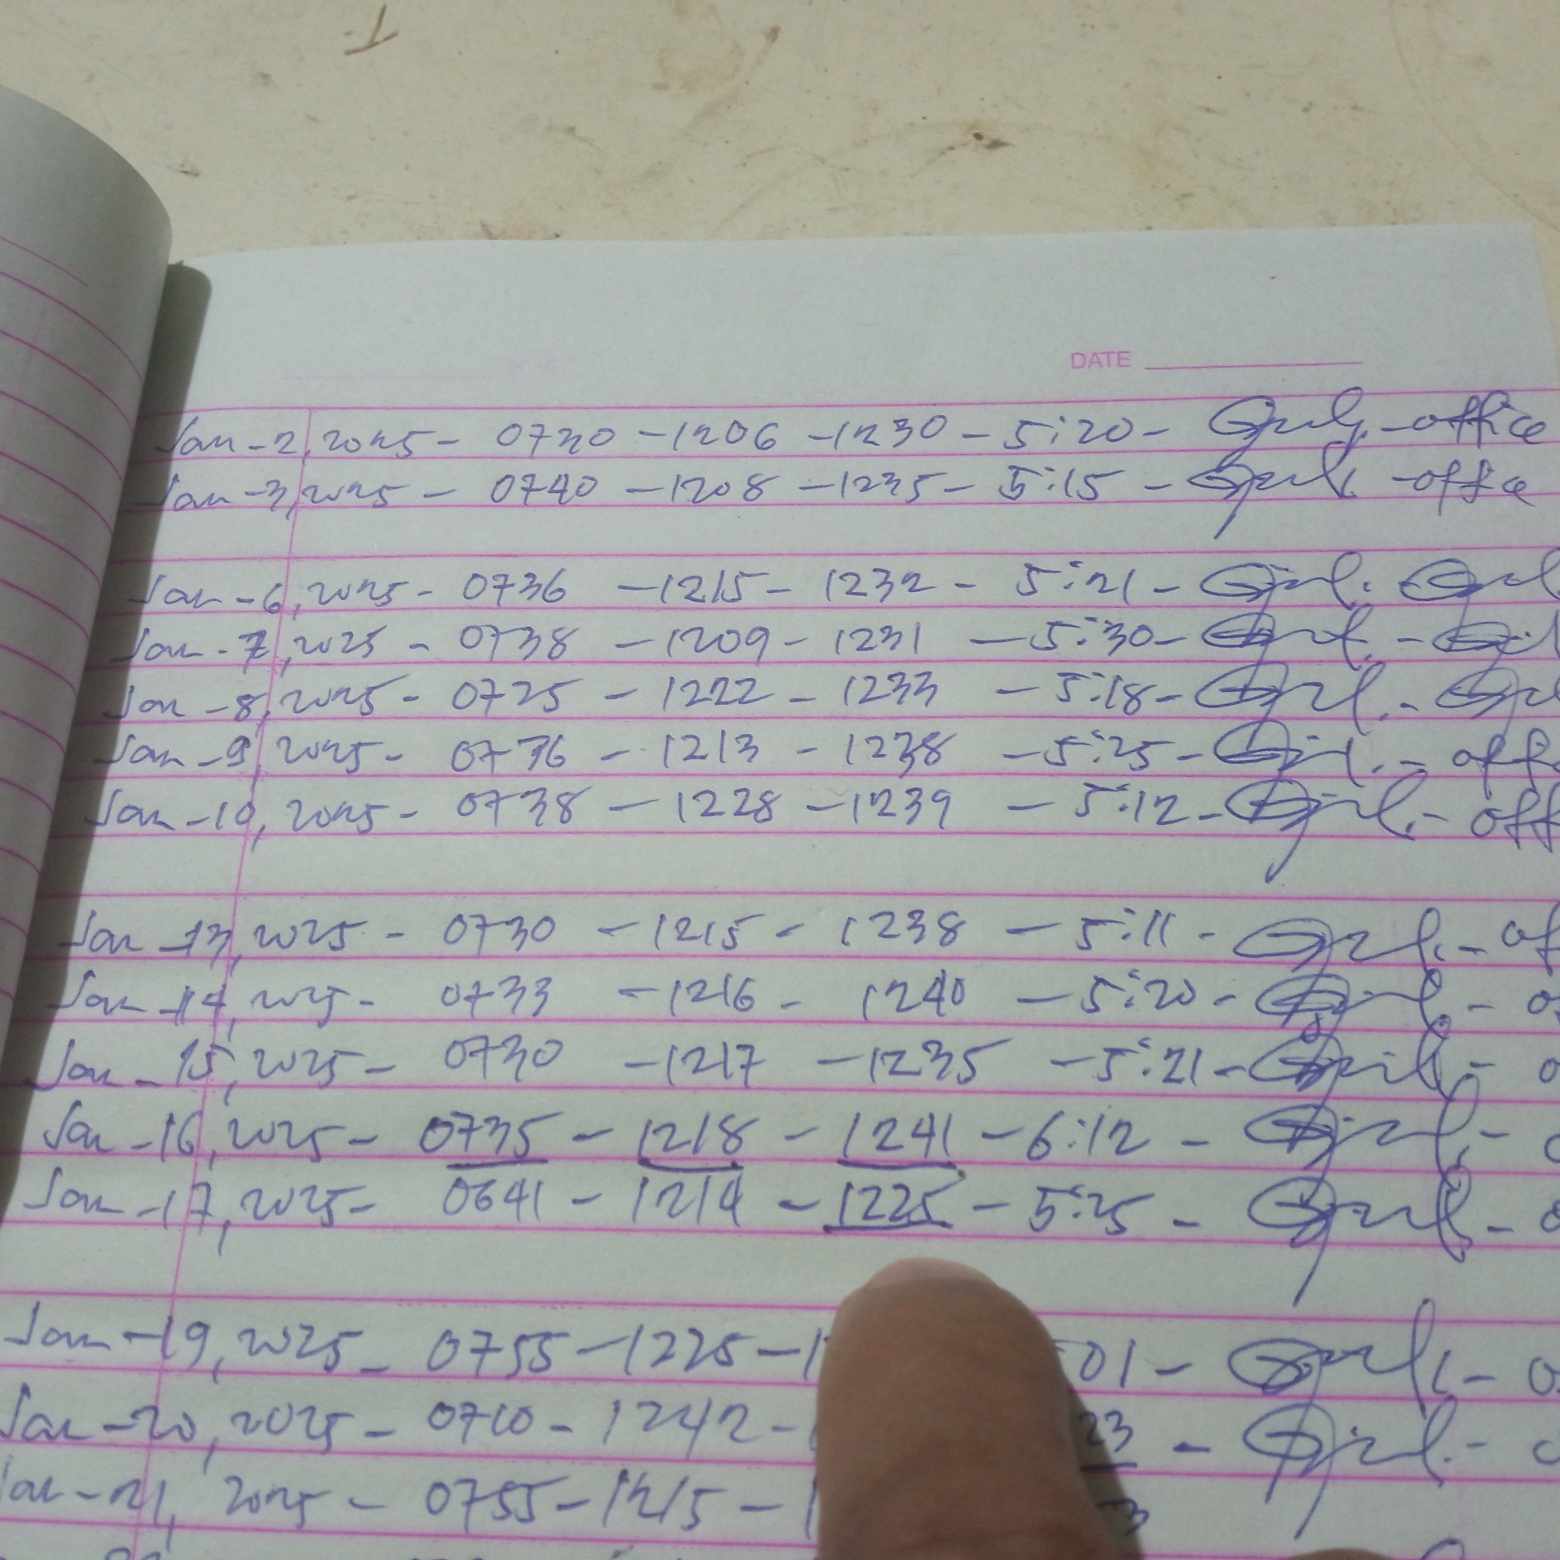 DATE
Jan - 2, 2025 - 0730 - 1206 - 1230 - 5:20 - office
Jan - 3, 2025 - 0740 - 1208 - 1235 - 5:15 - offce
Jan - 6, 2025 - 0736 - 1215 - 1232 - 5:21 -
Jan - 7, 2025 - 0738 - 1209 - 1231 - 5:30 -
Jan - 8, 2025 - 0725 - 1222 - 1233 - 5:18 -
Jan - 9, 2025 - 0736 - 1213 - 1238 - 5:25 - - off
Jan - 10, 2025 - 0738 - 1228 - 1239 - 5:12 - - off
Jan - 13, 2025 - 0730 - 1215 - 1238 - 5:11 - - of
Jan - 14, 2025 - 0733 - 1216 - 1240 - 5:20 - - o
Jan - 15, 2025 - 0730 - 1217 - 1235 - 5:21 - - o
Jan - 16, 2025 - 0735 - 1218 - 1241 - 6:12 - -
Jan - 17, 2025 - 0641 - 1214 - 1225 - 5:25 - -
Jan - 19, 2025 - 0755 - 1225 - 1 01 - - o
Jan - 20, 2025 - 0710 - 1242 - 23 - -
Jan - 21, 2025 - 0755 - 1215 - 1 3